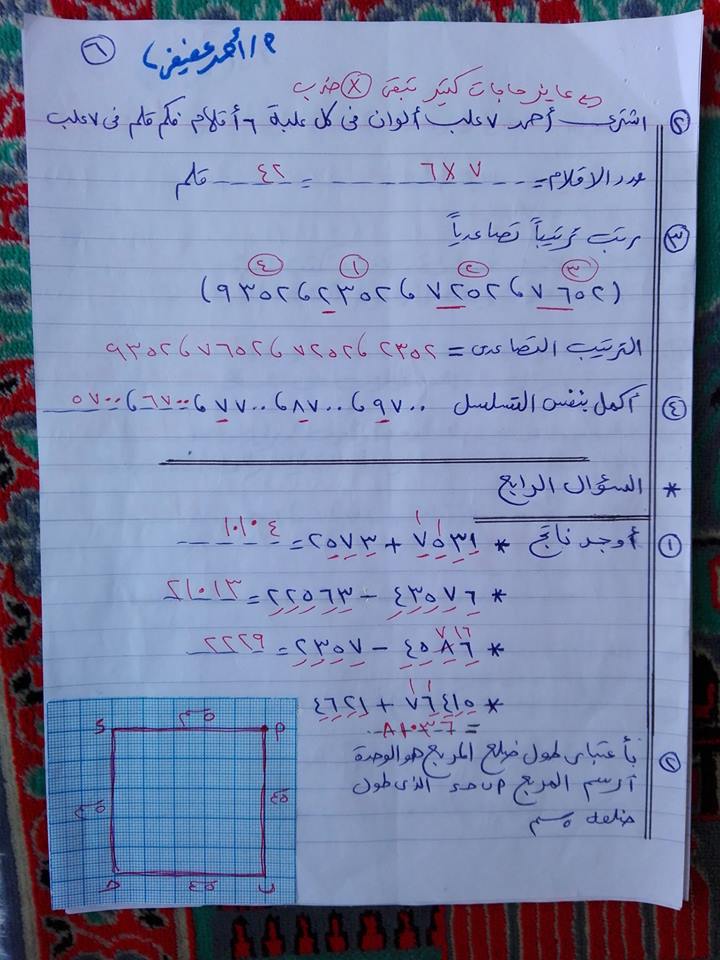 ٦
م/ أحمد عفيفي
عايز حاجات كتير تبقى × ضرب
٢ اشترى أحمد ٧ علب ألوان فى كل علبة ٦ أقلام فكم قلم فى ٧ علب
عدد الاقلام = ٧ × ٦ = ٤٢ قلم
٣ رتب ترتيباً تصاعدياً
٣ ٢ ١ ٤
(٧٦٥٢ ، ٧٢٥٢ ، ٢٣٥٢ ، ٩٣٥٢)
الترتيب التصاعدى = ٢٣٥٢ ، ٧٢٥٢ ، ٧٦٥٢ ، ٩٣٥٢
٤ أكمل بنفس التسلسل ٩٧٠٠ ، ٨٧٠٠ ، ٧٧٠٠ ، ٦٧٠٠ ، ٥٧٠٠
* السؤال الرابع
١ أوجد ناتج * ٧٥٣١ + ٢٥٧٣ = ١٠١٠٤
* ٤٣٥٧٦ - ٢٢٥٦٣ = ٢١٠١٣
* ٤٥٨٦ - ٢٣٥٧ = ٢٢٢٩
* ٧٦٤١٥ + ٤٦٢١
= ٨١٠٣٦
٢ بأعتبار طول ضلع المربع هو الوحدة
أرسم المربع ٢ ب حـ ء الذى طول
ضلعه ٥ سم
ء ٥سم ٢
٥سم ٥سم
حـ ٥سم ب